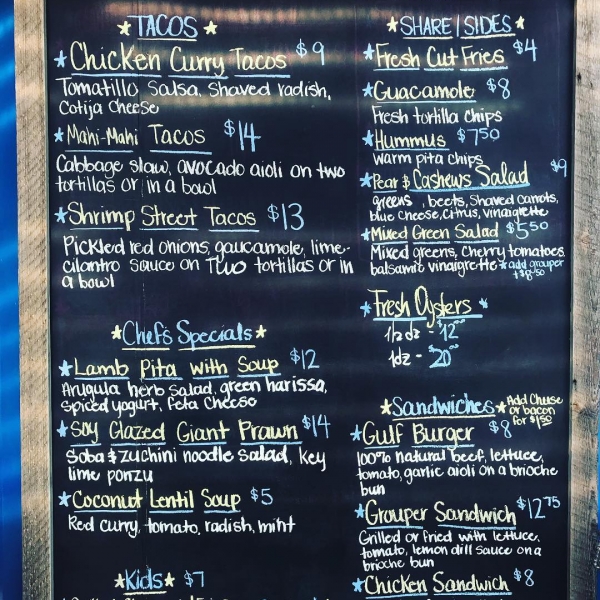 TACOS
Chicken Curry Tacos $9
Tomatillo Salsa, Shaved radish,
Cotija Cheese
Mahi-Mahi Tacos $14
Cabbage slaw, avocado aioli on two
tortillas or in a bowl
Shrimp Street Tacos $13
Pickled red onions, gaucamole, lime-
cilantro sauce on Two tortillas or in
a bowl
Chef's Specials
Lamb Pita with Soup $12
Arugula herb Salad, green harissa,
Spiced yogurt, Feta Cheese
Soy Glazed Giant Prawn $14
Soba & zuchini noodle salad, key
lime ponzu
Coconut Lentil Soup $5
Red curry, tomato, radish, mint
Kids $7
SHARE/SIDES
Fresh Cut Fries $4
Guacamole $8
Fresh tortilla chips
Hummus $7.50
Warm pita chips
Pear & Cashews Salad $9
greens, beets, Shaved carrots,
blue cheese, citrus, vinaigrette
Mixed Green Salad $5.50
Mixed greens, Cherry tomatoes
balsamic vinaigrette *add grouper
+$8.50
Fresh Oysters
1/2 dz - $12.00
1dz - $20.00
Sandwiches *Add Cheese
or bacon
for $1.50
Gulf Burger $8
100% natural beef, lettuce,
tomato, garlic aioli on a brioche
bun
Grouper Sandwich $12.75
Grilled or fried with lettuce,
tomato, lemon dill sauce on a
brioche bun
Chicken Sandwich $8